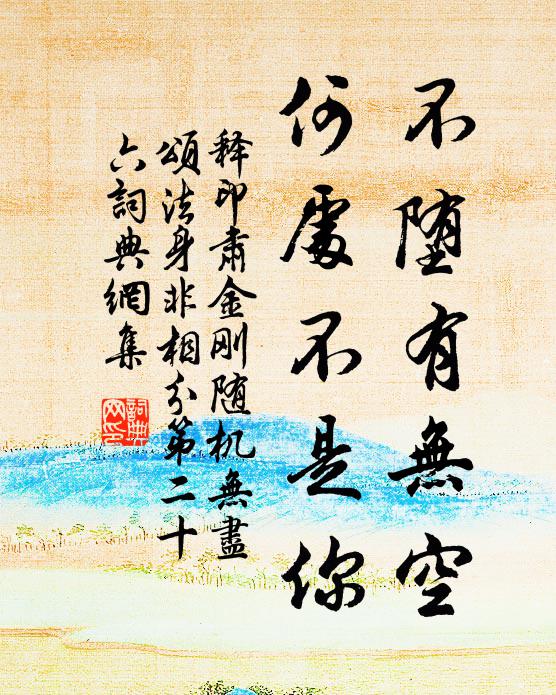 不堕有無空
何處不是你
释印肃金刚随机無盡
頌法身非相分第二十
六詞典網集
詞典网印